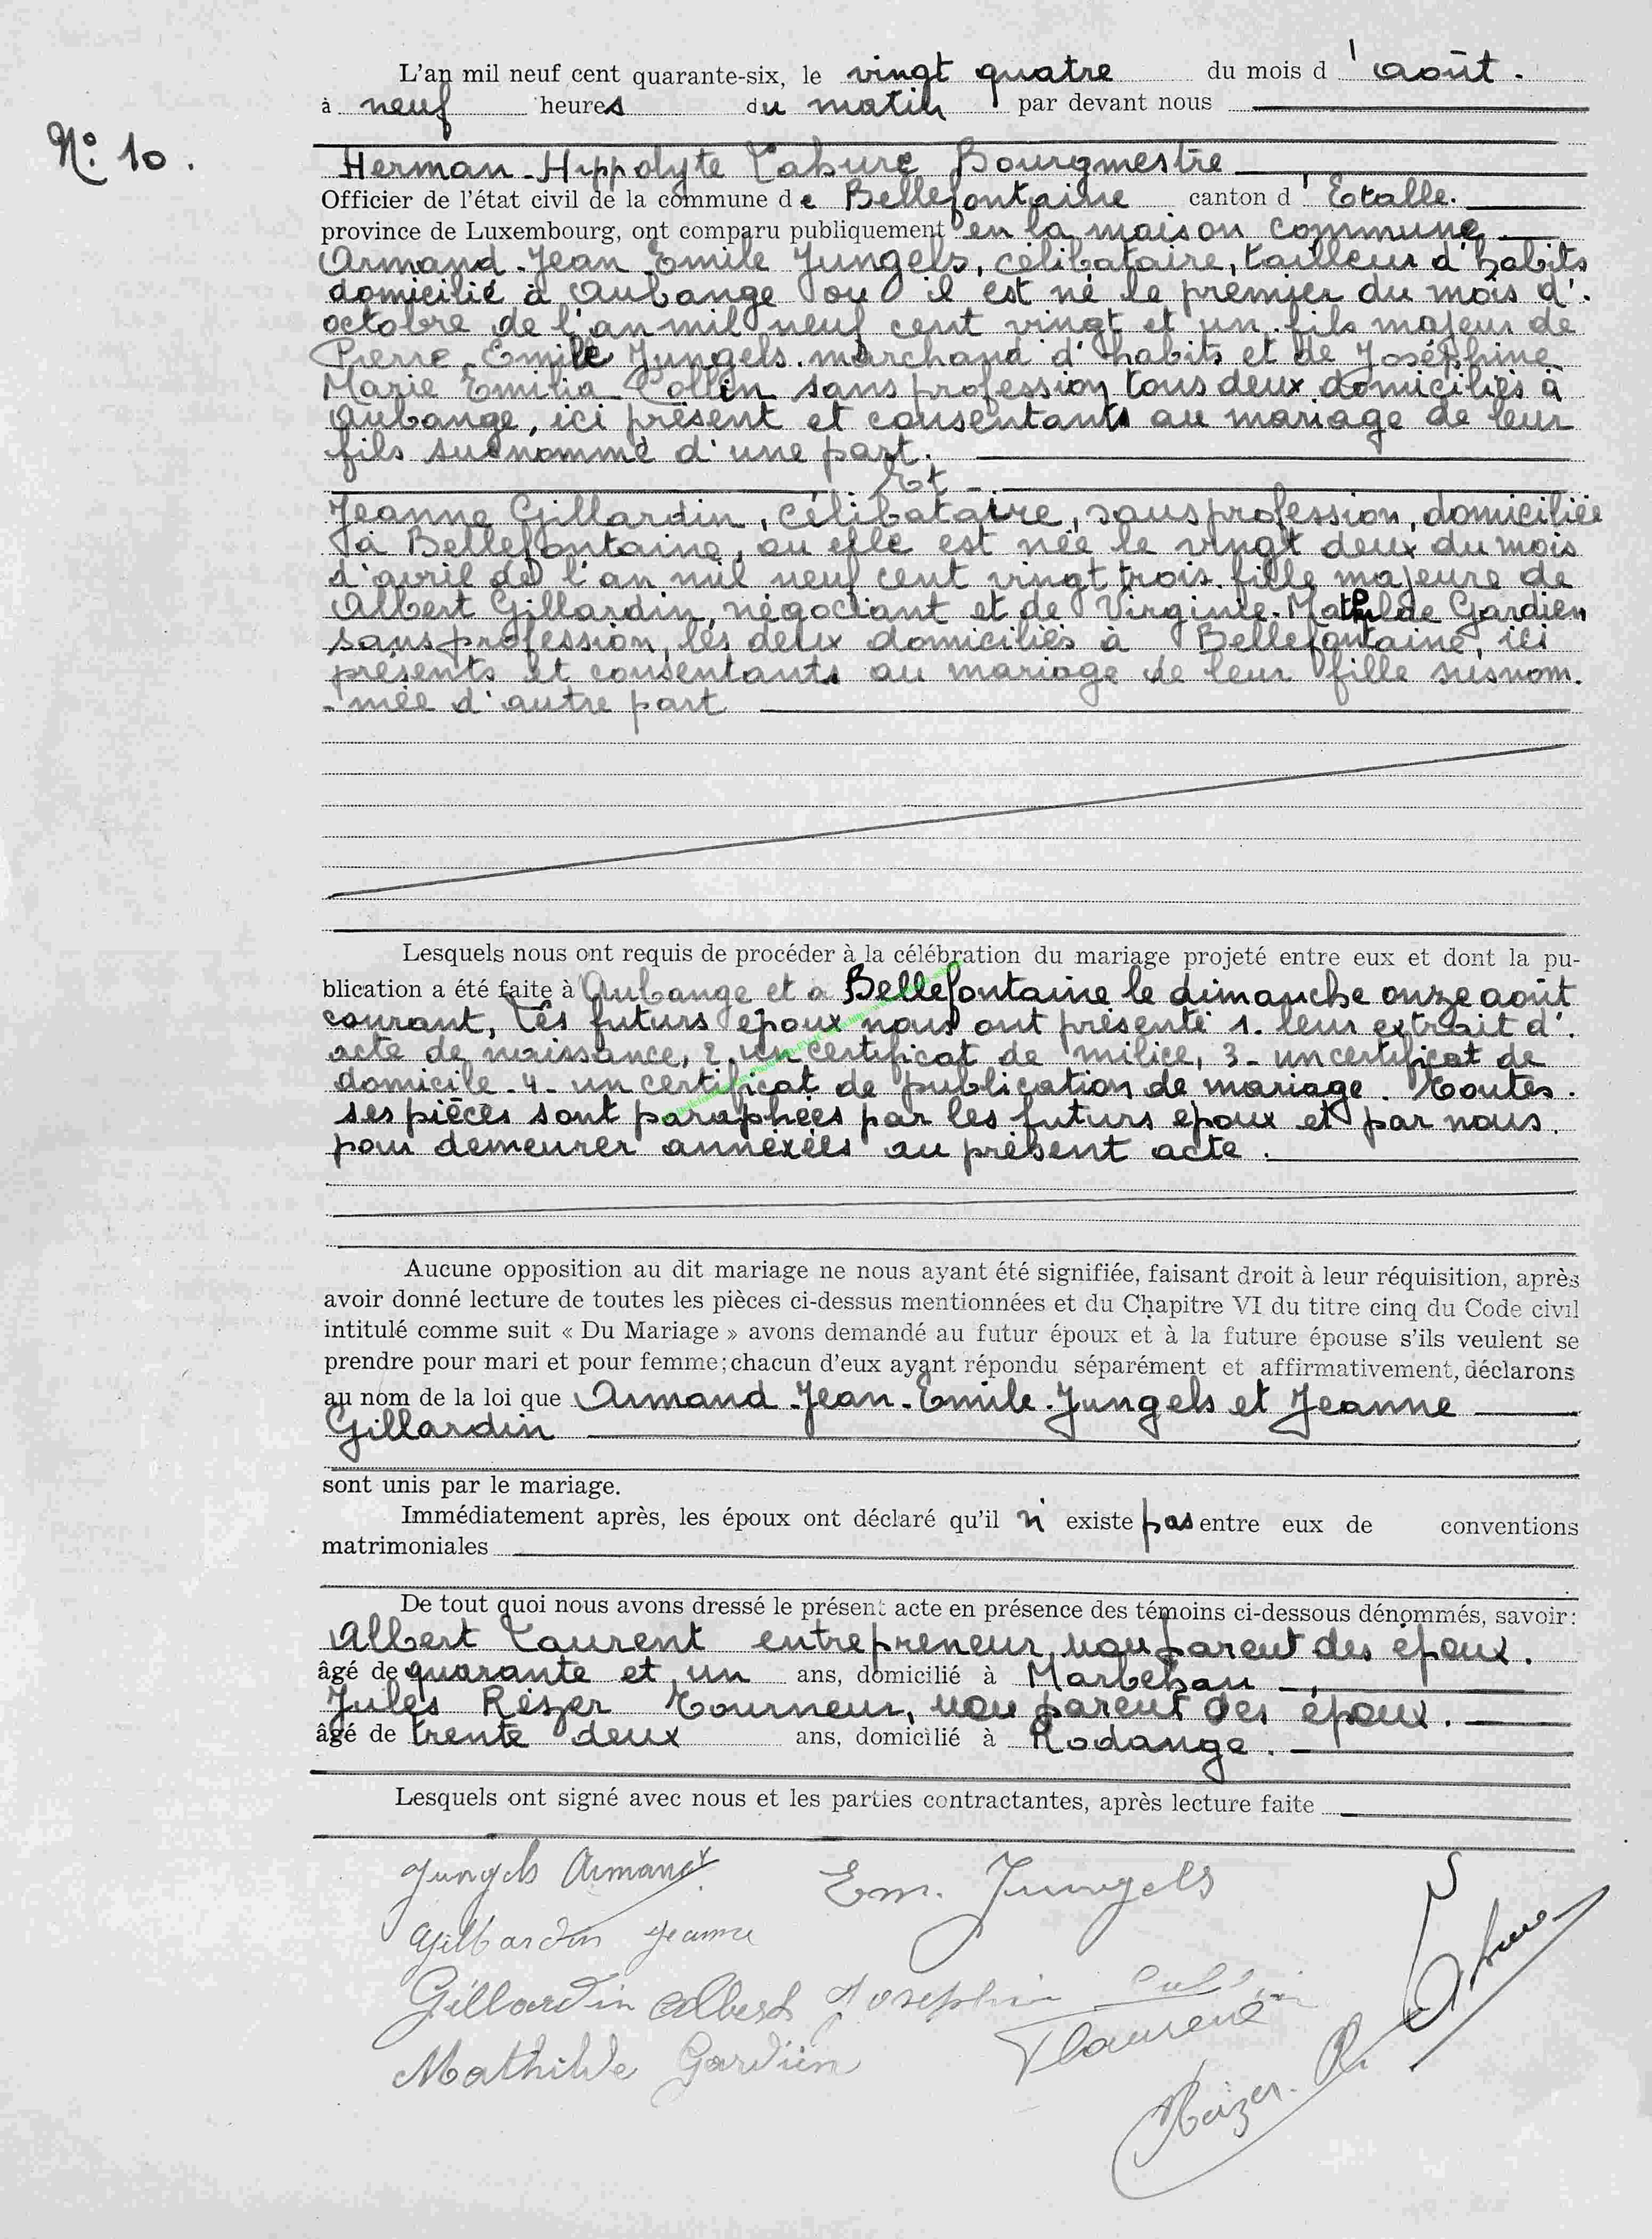 L'an mil neuf cent quarante-six, le vingt quatre du mois d' août.
à neuf heures du matin par devant nous
N° 10.
Herman-Hippolyte Labure Bourgmestre
Officier de l'état civil de la commune de Bellefontaine canton d' Etalle.
province de Luxembourg, ont comparu publiquement en la maison commune
Armand-Jean Emile Jungels, célibataire, tailleur d'habits
domicilié à Aubange ou il est né le premier du mois d'.
octobre de l'an mil neuf cent vingt et un. fils majeur de
Pierre Emile Jungels. marchand d'habits et de Joséphine
Marie Emilia Collin sans profession tous deux domiciliés à
Aubange, ici présent et consentants au mariage de leur
fils susnommé d'une part.
Et
Jeanne Gillardin, célibataire, sans profession, domiciliée
à Bellefontaine, ou elle est née le vingt deux du mois
d'avril de l'an mil neuf cent vingt trois. fille majeure de
Albert Gillardin, négociant et de Virginie-Mathilde Gardien
sans profession, les deux domiciliés à Bellefontaine, ici
présents et consentants au mariage de leur fille susnom.
-mée d'autre part
Lesquels nous ont requis de procéder à la célébration du mariage projeté entre eux et dont la pu-
blication a été faite à Aubange et a Bellefontaine le dimanche onze août
courant, Les futurs époux nous ont présenté 1. leur extrait d'.
acte de naissance, 2. un certificat de milice, 3- un certificat de
domicile-4- un certificat de publication de mariage. Toutes.
ses pièces sont paraphées par les futurs époux et par nous.
pour demeurer annéxées au présent acte.
Aucune opposition au dit mariage ne nous ayant été signifiée, faisant droit à leur réquisition, après
avoir donné lecture de toutes les pièces ci-dessus mentionnées et du Chapitre VI du titre cinq du Code civil
intitulé comme suit « Du Mariage » avons demandé au futur époux et à la future épouse s'ils veulent se
prendre pour mari et pour femme; chacun d'eux ayant répondu séparément et affirmativement, déclarons
au nom de la loi que Armand-Jean-Emile-Jungels et Jeanne
Gillardin
sont unis par le mariage.
Immédiatement après, les époux ont déclaré qu'il n' existe pas entre eux de conventions
matrimoniales
De tout quoi nous avons dressé le présent acte en présence des témoins ci-dessous dénommés, savoir:
Albert Laurent entrepreneur, non parent des époux.
âgé de quarante et un ans, domicilié à Marbehan
Jules Rézer Tourneur, non parent des époux.
âgé de trente deux ans, domicilié à Rodange.
Lesquels ont signé avec nous et les parties contractantes, après lecture faite
Jungels Armand Em. Jungels
Gillardin Jeanne
Gillardin Albert Joséphine Collin
Laurent
Mathilde Gardien